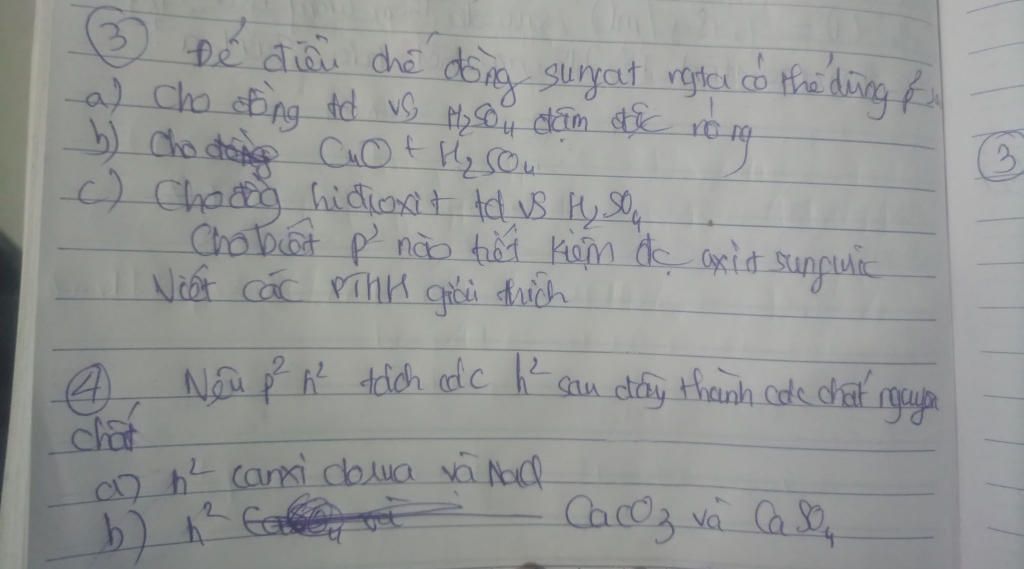 ③ Để điều chế đồng sunfat ngta có thể dùng p²
a) Cho đồng td vs H₂SO₄ đậm đặc nóng
b) Cho CuO + H₂SO₄
c) Cho đồng hiđroxit td vs H₂SO₄
Cho biết p² nào tiết kiệm đc axit sunfuric
Viết các PTHH giải thích
④ Nêu p² h² tách các h² sau đây thành các chất nguyên
chất
a) h² canxi clorua và NaCl
b) h² CaCO₃ và CaSO₄
③